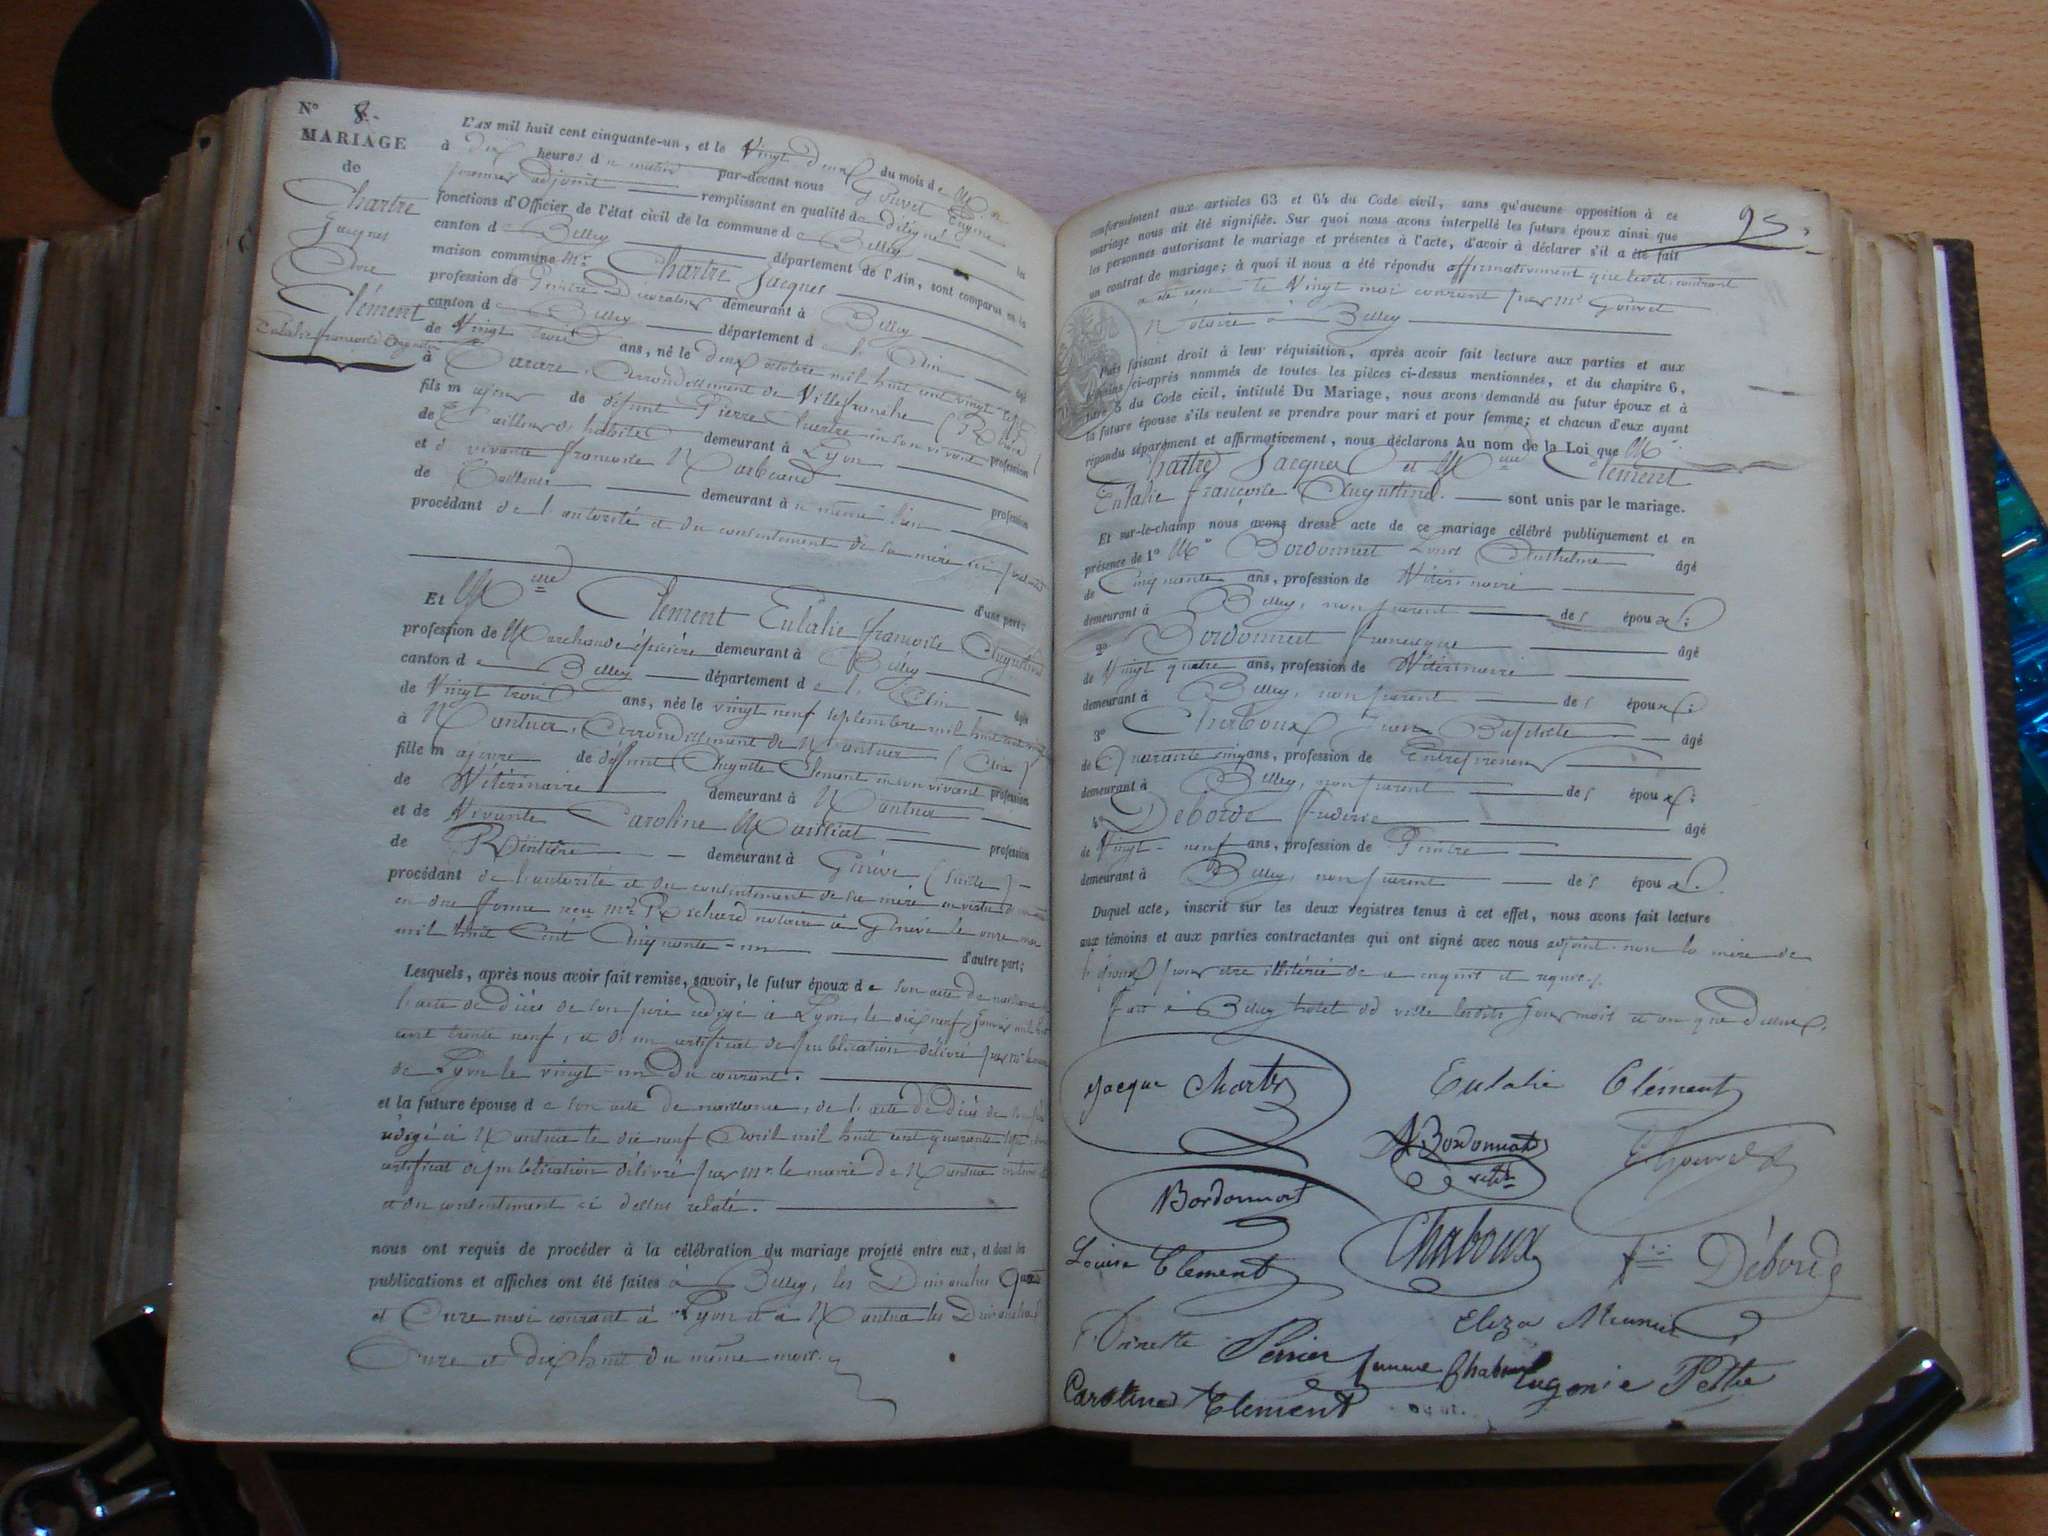 N° 8.
MARIAGE
de
Chartre
Jacques
Avec
Clément
Eulalie françoise Augustine
L'AN mil huit cent cinquante-un, et le Vingt deux du mois de Mai
à dix heures du matin par-devant nous Gouvet Eugène
premier adjoint remplissant en qualité de délégué les
fonctions d'Officier de l'état civil de la commune de Belley
canton de Belley département de l'Ain, sont comparus en la
maison commune Mr Chartre Jacques
profession de Peintre Décorateur demeurant à Belley
canton de Belley département de l'Ain âgé
de Vingt trois ans, né le deux octobre mil huit cent vingt sept
à Tarare, arrondissement de Villefranche (Rhône)
fils majeur de défunt Pierre Chartre en son vivant profession
de Tailleur d'habits demeurant à Lyon
et de vivante françoise profession
de demeurant à même lieu
procédant de l'autorité et du consentement de sa mère ici présente
d'une part;
Et Mlle Clément Eulalie françoise Augustine
profession de Marchande épicière demeurant à Belley
canton de Belley département de l'Ain âgée
de Vingt trois ans, née le vingt neuf septembre mil huit cent vingt
à Nantua, arrondissement de Nantua (Ain)
fille majeure de défunt Auguste Clément en son vivant profession
de Vétérinaire demeurant à Nantua
et de Vivante Caroline Maissiat profession
de Rentière demeurant à Genève (Suisse)
procédant de l'autorité et du consentement de sa mère en vertu d'un
en due forme reçu Mre Richard notaire à Genève le onze mai
mil huit cent cinquante-un d'autre part;
Lesquels, après nous avoir fait remise, savoir, le futur époux de son acte de naissance
l'acte de décès de son père rédigé à Lyon, le dix neuf Janvier mil huit
cent trente neuf, et d'un certificat de publication délivré par mr
de Lyon le vingt-un du courant.
et la future épouse de son acte de naissance, de l'acte de décès de son père
rédigé à Nantua le dix neuf avril mil huit cent quarante
certificat de publication délivré par Mr le maire de Nantua
et du consentement ci dessus relaté.
nous ont requis de procéder à la célébration du mariage projeté entre eux, et dont les
publications et affiches ont été faites à Belley, les Dimanches quatre
et Onze mai courant à Lyon et à Nantua les Dimanches
Onze et dix huit du même mois.
95.
conformément aux articles 63 et 64 du Code civil, sans qu'aucune opposition à ce
mariage nous ait été signifiée. Sur quoi nous avons interpellé les futurs époux ainsi que
les personnes autorisant le mariage et présentes à l'acte, d'avoir à déclarer s'il a été fait
un contrat de mariage; à quoi il nous a été répondu affirmativement que ledit contrat
a été reçu le Vingt mai courant par mr Gouvet
Notaire à Belley
Puis faisant droit à leur réquisition, après avoir fait lecture aux parties et aux
témoins ci-après nommés de toutes les pièces ci-dessus mentionnées, et du chapitre 6,
titre 5 du Code civil, intitulé Du Mariage, nous avons demandé au futur époux et à
la future épouse s'ils veulent se prendre pour mari et pour femme; et chacun d'eux ayant
répondu séparément et affirmativement, nous déclarons Au nom de la Loi que Mr
Chartre Jacques et Mlle Clément
Eulalie françoise Augustine. sont unis par le mariage.
Et sur-le-champ nous avons dressé acte de ce mariage célébré publiquement et en
présence de 1° Mr Bordonnat Anthelme âgé
de Cinquante ans, profession de Vétérinaire
demeurant à Belley, non parent des époux;
2° Bordonnat âgé
de Vingt quatre ans, profession de Vétérinaire
demeurant à Belley, non parent des époux;
3° Chaboux Jean Baptiste âgé
de Quarante cinq ans, profession de Entrepreneur
demeurant à Belley, non parent des époux;
4° Deborde âgé
de Vingt-neuf ans, profession de Peintre
demeurant à Belley, non parent des époux.
Duquel acte, inscrit sur les deux registres tenus à cet effet, nous avons fait lecture
aux témoins et aux parties contractantes qui ont signé avec nous adjoint non la mère de
l'époux pour être illitérée de ce enquis et requis.
fait à Belley hotel de ville lesdits Jour mois et an que dessus.
Jacque Chartre Eulalie Clément
A Bordonnat
vétre
Bordonnat
Chaboux
Louise Clement
Débord
Eliza Meunier
Perrier femme Chaboux Eugenie
Caroline Clement